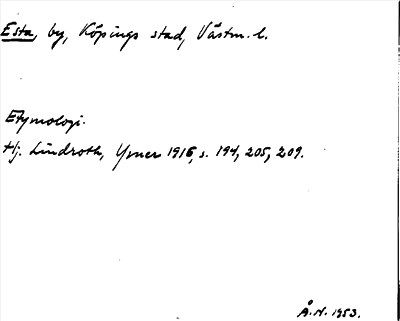 Esta, by, Köpings stad, Västm. l.
Etymologi.
Hj. Lindroth, Ymer 1916, s. 194, 205, 209.
Å.N. 1953.